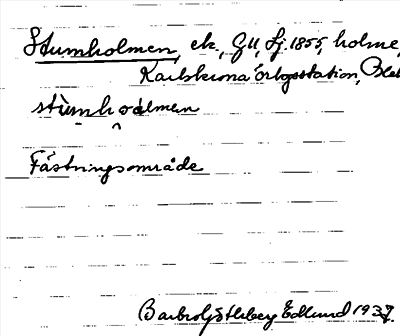 Stumholmen, ek, GU, Lj. 1855, holme,
Karlskrona örlogsstation, Blek
stumholmen
Fästningsområde
Barbro Ljёtleberg Edlund 1937.